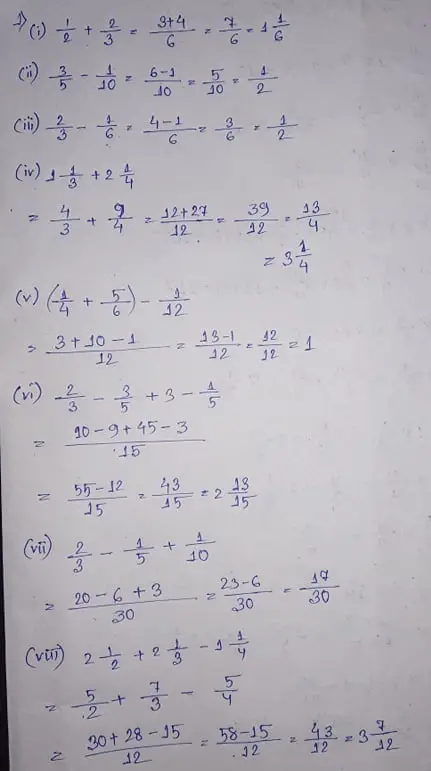 1) (i) 1/2 + 2/3 = (3+4)/6 = 7/6 = 1 1/6
(ii) 3/5 - 1/10 = (6-1)/10 = 5/10 = 1/2
(iii) 2/3 - 1/6 = (4-1)/6 = 3/6 = 1/2
(iv) 1 1/3 + 2 1/4
= 4/3 + 9/4 = (12+27)/12 = 39/12 = 13/4
= 3 1/4
(v) (1/4 + 5/6) - 1/12
= (3+10-1)/12 = (13-1)/12 = 12/12 = 1
(vi) 2/3 - 3/5 + 3 - 1/5
= (10-9+45-3)/15
= (55-12)/15 = 43/15 = 2 13/15
(vii) 2/3 - 1/5 + 1/10
= (20-6+3)/30 = (23-6)/30 = 17/30
(viii) 2 1/2 + 2 1/3 - 1 1/4
= 5/2 + 7/3 - 5/4
= (30+28-15)/12 = (58-15)/12 = 43/12 = 3 7/12